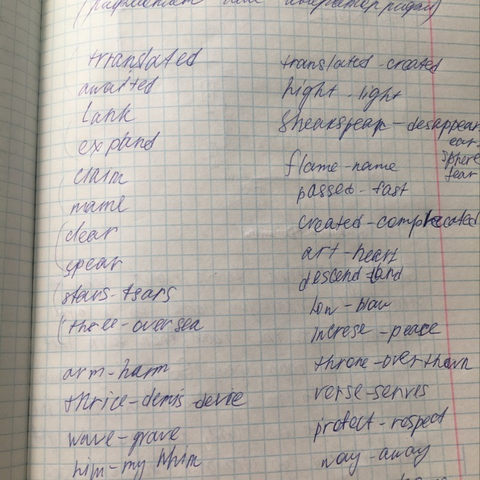 translated
awaited
lank
expland
claim
name
clear
spear
stars-tsars
three-over sea
arm-harm
thrice-demis-devie
wave-grave
him-my whim
translated-created
hight-light
Sheakspear-desappear
ear
sphere
fear
flame-name
passed-fast
created-complecated
art-heart
descend-land
low-blow
increse-peace
throne-overthown
verse-serves
protect-respect
way-away